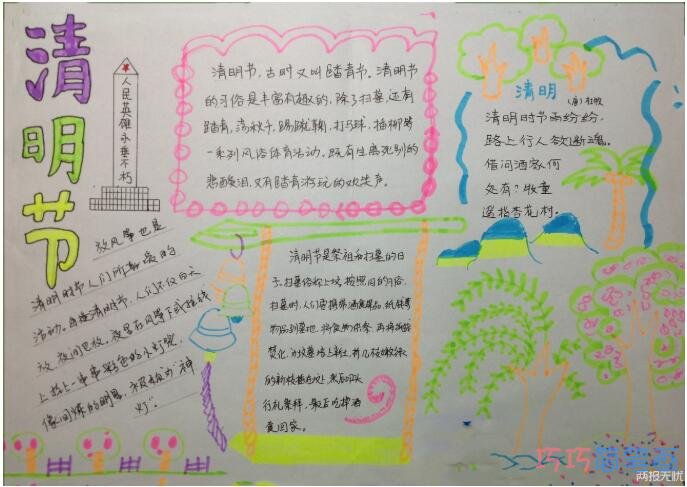 清明节
人民英雄永垂不朽
清明节,古时又叫踏青节。清明节
的习俗是丰富有趣的,除了扫墓,还有
踏青,荡秋千,踢蹴鞠,打马球,插柳等
一系列风俗体育活动。既有生离死别的
悲酸泪,又有踏青游玩的欢笑声。
清明
(唐)杜牧
清明时节雨纷纷,
路上行人欲断魂。
借问酒家何
处有?牧童
遥指杏花村。
放风筝也是
清明时节人们所喜爱的
活动。每逢清明节,人们不仅白天
放,夜间也放。夜里在风筝下或拉线
上挂上一串串彩色的小灯笼,
像闪烁的明星,被称为"神
灯"。
清明节是祭祖和扫墓的日
子。扫墓俗称上坟,按照旧的习俗,
扫墓时,人们要携带酒食果品,纸钱等
物品到墓地,将食物供祭,再将纸钱
焚化,为坟墓培上新土,折几枝嫩绿
的新枝插在坟上,然后叩头
行礼祭拜,最后吃掉酒
食回家。
巧巧
两报无忧